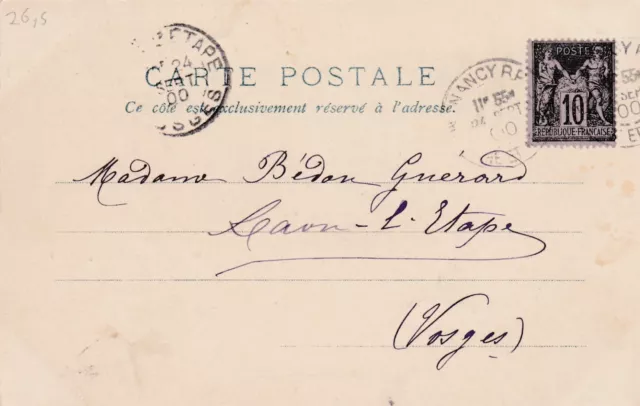 26,5
ETAPE
24
SEPT
00
VOSGES
CARTE POSTALE
Ce côté est exclusivement réservé à l'adresse.
NANCY R.P.
SEPT
00
POSTE
10
REPUBLIQUE FRANCAISE
Madame Bédon Guérard
Raon-l'Etape
(Vosges)